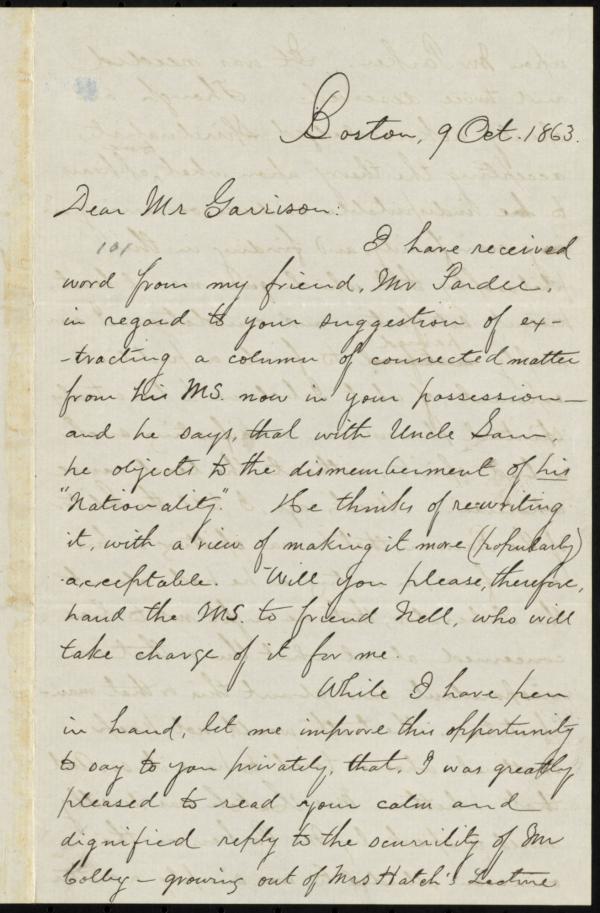 Boston, 9 Oct. 1863.
Dear Mr Garrison:
101
I have received
word from my friend, Mr Pardee,
in regard to your suggestion of ex-
-tracting a column of connected matter
from his MS. now in your possession—
and he says, that with Uncle Sam,
he objects to the dismemberment of his
"Nationality." He thinks of rewriting
it, with a view of making it more (popularly)
acceptable. Will you please, therefore,
hand the MS. to friend Nell, who will
take charge of it for me.
While I have pen
in hand, let me improve this opportunity
to say to you privately, that, I was greatly
pleased to read your calm and
dignified reply to the scurrility of Mr
Colby — growing out of Mrs Hatch's Lecture